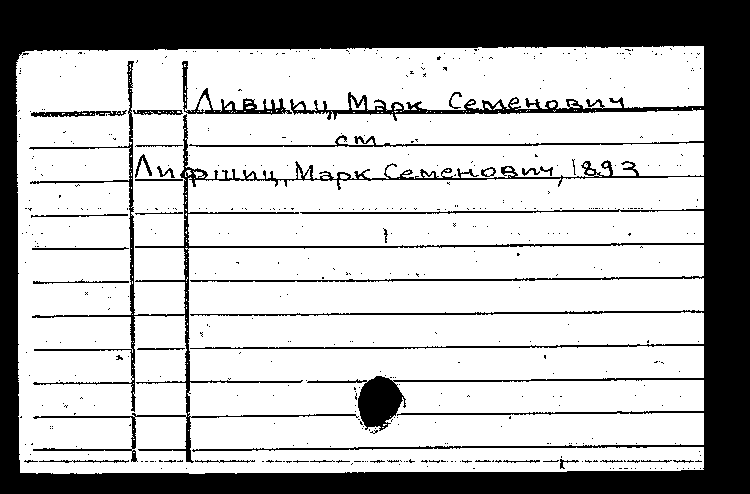 Лившиц, Марк Семенович
ст.
Лифшиц, Марк Семенович, 1893